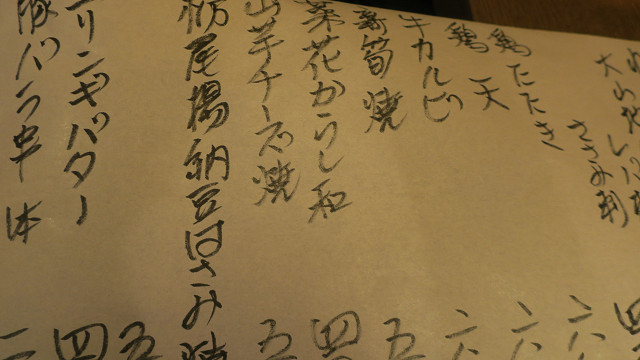 大山地
ささみ刺
鶏たたき
鶏天
牛カルビ
新筍焼
菜花からし和
山芋チーズ焼
栃尾揚納豆はさみ焼
エリンギバター
豚バラ串
四
五
四
五
五
四